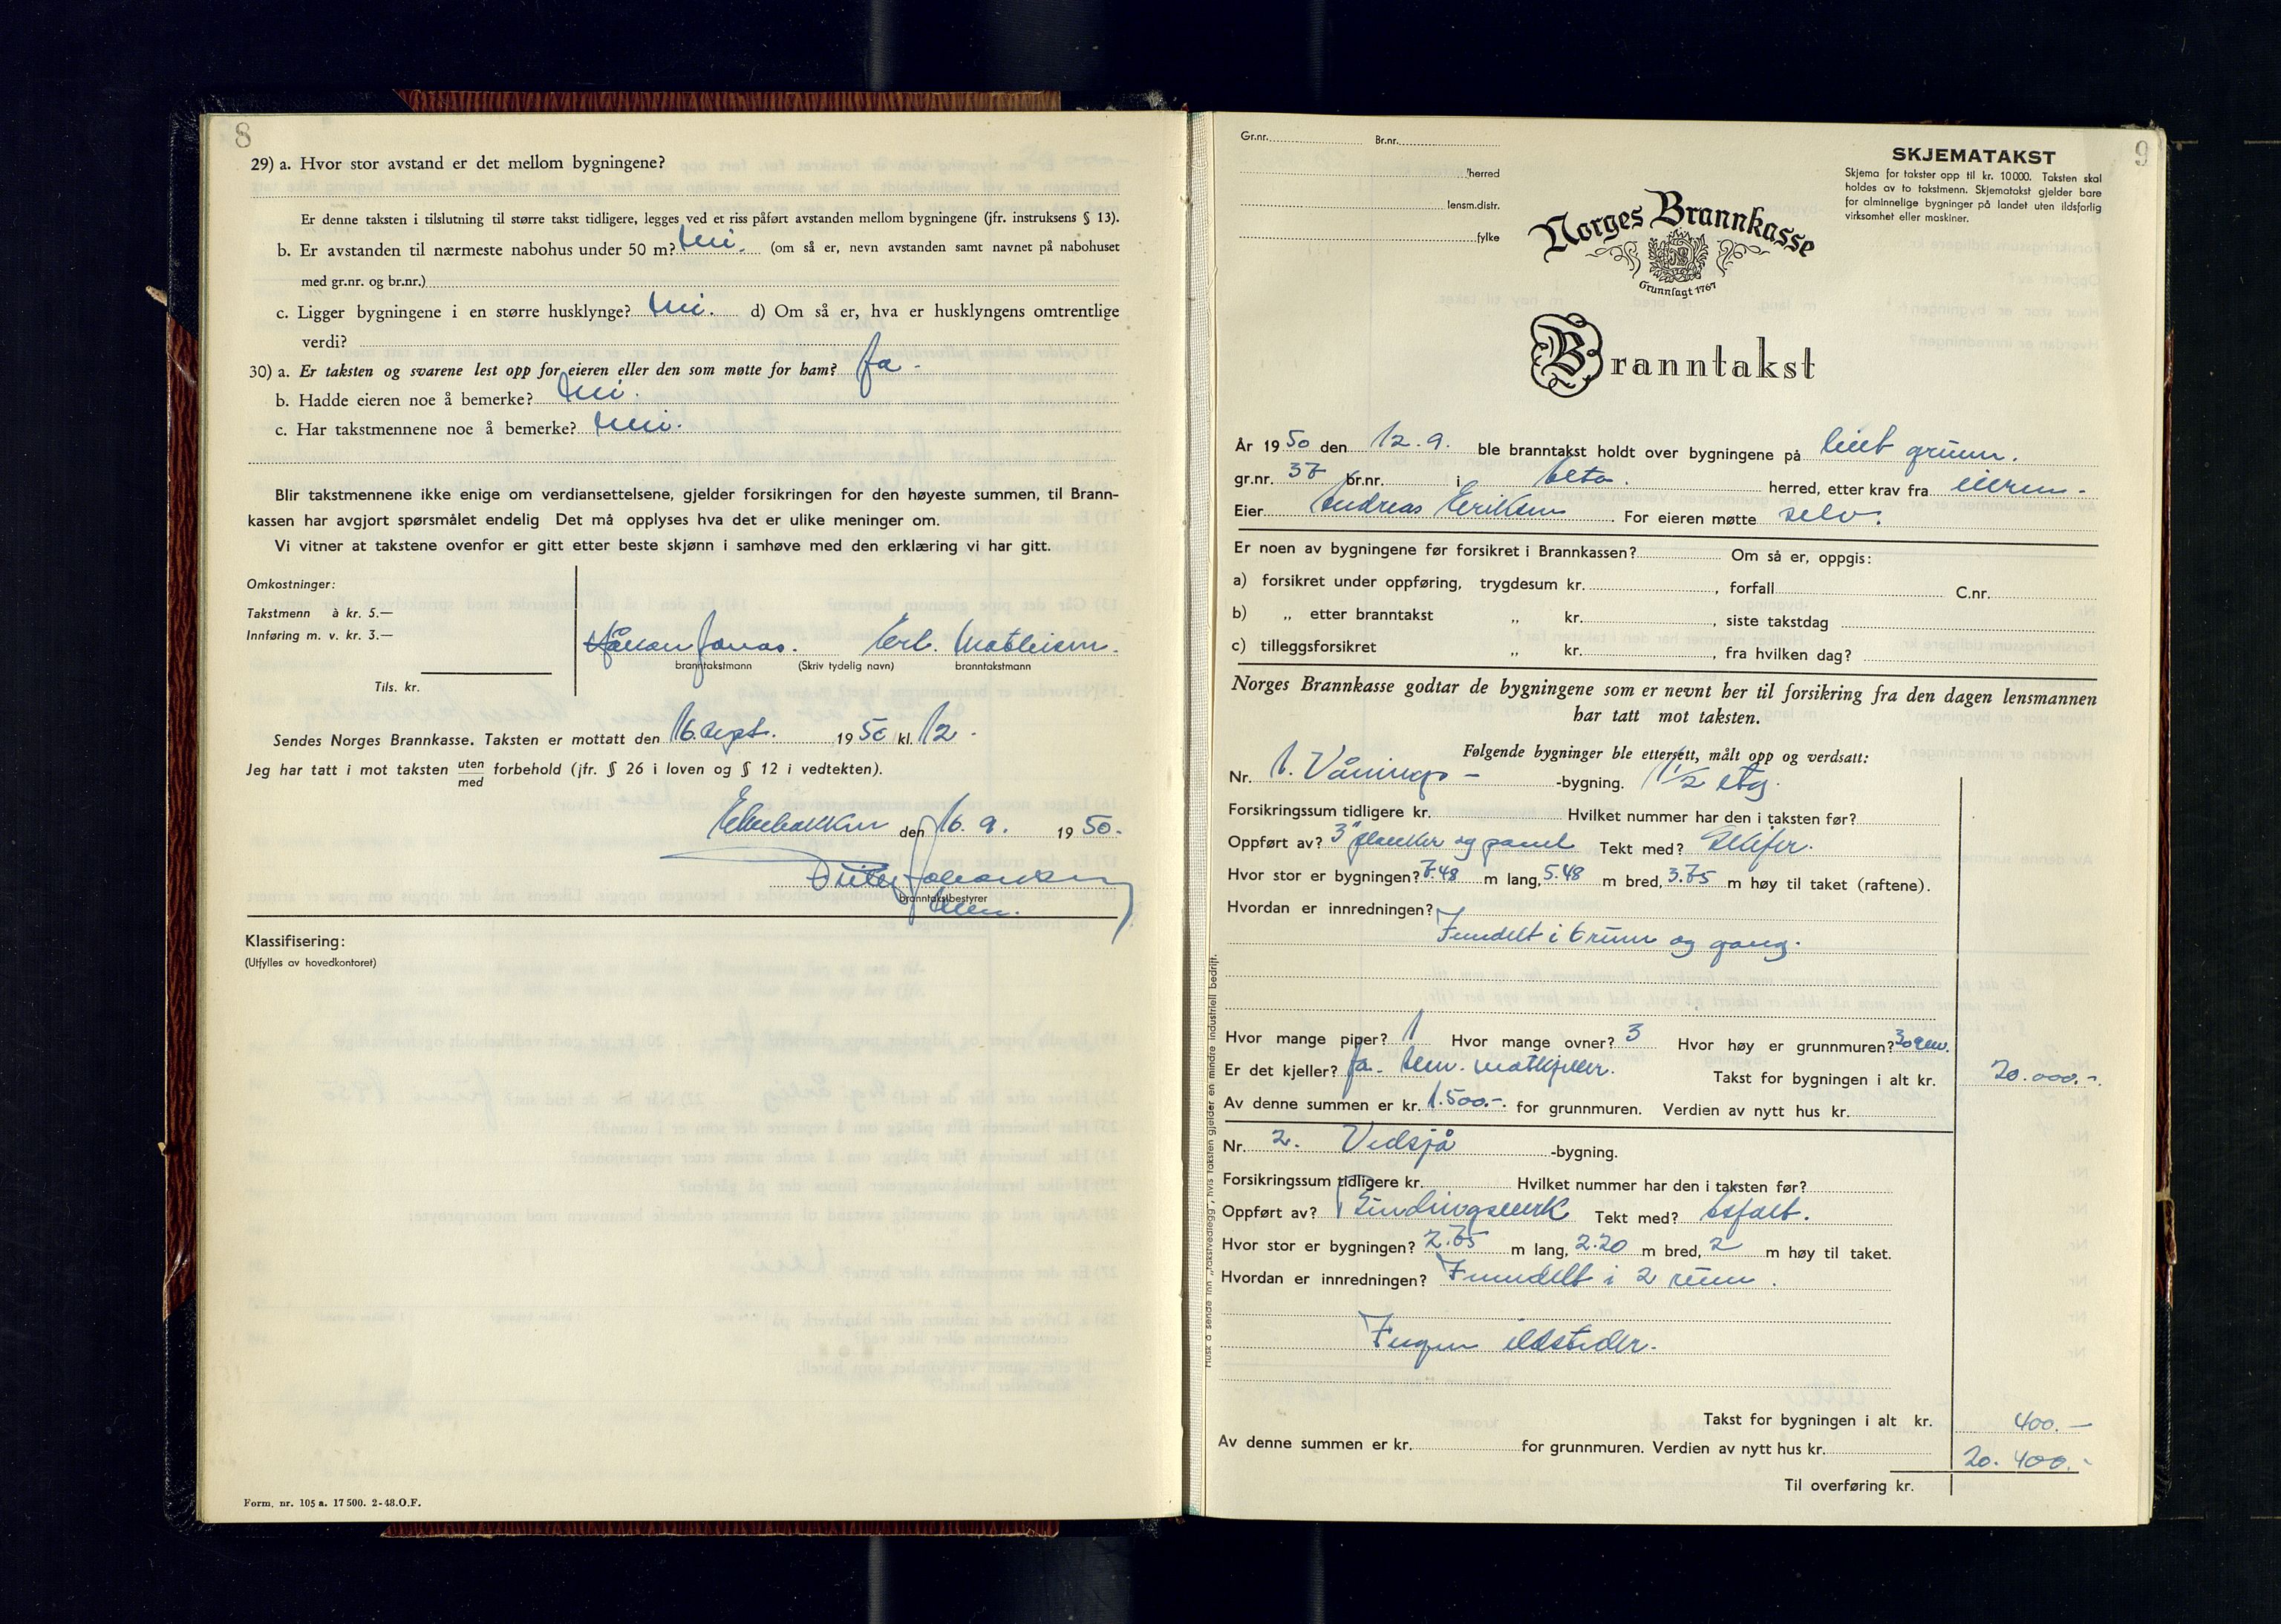 8
29) a. Hvor stor avstand er det mellom bygningene?
Er denne taksten i tilslutning til større takst tidligere, legges ved et riss påført avstanden mellom bygningene (jfr. instruksens § 13).
b. Er avstanden til nærmeste nabohus under 50 m? Nei. (om så er, nevn avstanden samt navnet på nabohuset
med gr.nr. og br.nr.)
c. Ligger bygningene i en større husklynge? Nei. d) Om så er, hva er husklyngens omtrentlige
verdi?
30) a. Er taksten og svarene lest opp for eieren eller den som møtte for ham? Ja.
b. Hadde eieren noe å bemerke? Nei.
c. Har takstmennene noe å bemerke? Nei.
Blir takstmennene ikke enige om verdiansettelsene, gjelder forsikringen for den høyeste summen, til Brann-
kassen har avgjort spørsmålet endelig Det må opplyses hva det er ulike meninger om.
Vi vitner at takstene ovenfor er gitt etter beste skjønn i samhøve med den erklæring vi har gitt.
Omkostninger:
Takstmenn à kr. 5.—
Innføring m. v. kr. 3.—
Tils. kr.
Håkon Jonas. Erl. Mathisen.
branntakstmann (Skriv tydelig navn) branntakstmann
Sendes Norges Brannkasse. Taksten er mottatt den 16. sept. 1950 kl. 12.
Jeg har tatt i mot taksten uten
med forbehold (jfr. § 26 i loven og § 12 i vedtekten).
Elvebakken den 16. 9. 1950.
branntakstbestyrer
Klassifisering:
(Utfylles av hovedkontoret)
Form. nr. 105 a. 17 500. 2-48. O.F.
9
Gr.nr. Br.nr.
herred
lensm.distr.
fylke
SKJEMATAKST
Skjema for takster opp til kr. 10 000. Taksten skal
holdes av to takstmenn. Skjematakst gjelder bare
for alminnelige bygninger på landet uten ildsfarlig
virksomhet eller maskiner.
Norges Brannkasse
Grunnlagt 1767
Branntakst
År 1950 den 12. 9. ble branntakst holdt over bygningene på leiet grunn.
gr.nr. 37 br.nr. i Alta. herred, etter krav fra eieren.
Eier Andreas Eriksen For eieren møtte selv.
Er noen av bygningene før forsikret i Brannkassen? Om så er, oppgis:
a) forsikret under oppføring, trygdesum kr. , forfall C.nr.
b) „ etter branntakst „ kr. , siste takstdag
c) tilleggsforsikret „ kr. , fra hvilken dag?
Norges Brannkasse godtar de bygningene som er nevnt her til forsikring fra den dagen lensmannen
har tatt mot taksten.
Følgende bygninger ble ettersett, målt opp og verdsatt:
Nr. 1. Vånings- -bygning. 1 1/2 etg.
Forsikringssum tidligere kr. Hvilket nummer har den i taksten før?
Oppført av? 3" planker og panel Tekt med? Skifer.
Hvor stor er bygningen? 7.48 m lang, 5.48 m bred, 3.75 m høy til taket (raftene).
Hvordan er innredningen?
Inndelt i 6 rum og gang.
Hvor mange piper? 1 Hvor mange ovner? 3 Hvor høy er grunnmuren? 30 cm.
Er det kjeller? Ja. Liten matkjeller. Takst for bygningen i alt kr. 20.000.-
Av denne summen er kr. 1.500.- for grunnmuren. Verdien av nytt hus kr.
Nr. 2. Vedsjå -bygning.
Forsikringssum tidligere kr. Hvilket nummer har den i taksten før?
Oppført av? Bindingsverk Tekt med? Asfalt.
Hvor stor er bygningen? 2.75 m lang, 2.20 m bred, 2 m høy til taket.
Hvordan er innredningen? Inndelt i 2 rum.
Ingen ildsteder.
Takst for bygningen i alt kr. 400.-
Av denne summen er kr. for grunnmuren. Verdien av nytt hus kr.
20.400.-
Til overføring kr.
Husk å sende inn „Takstvedlegg", hvis taksten gjelder en mindre industriell bedrift.